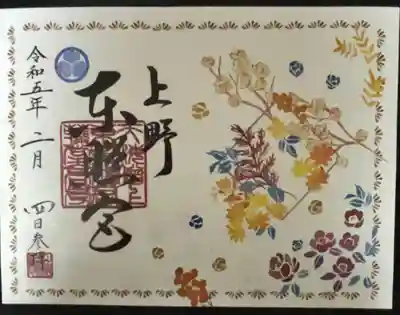 上野
東照宮
令和五年
二月
四日参拝